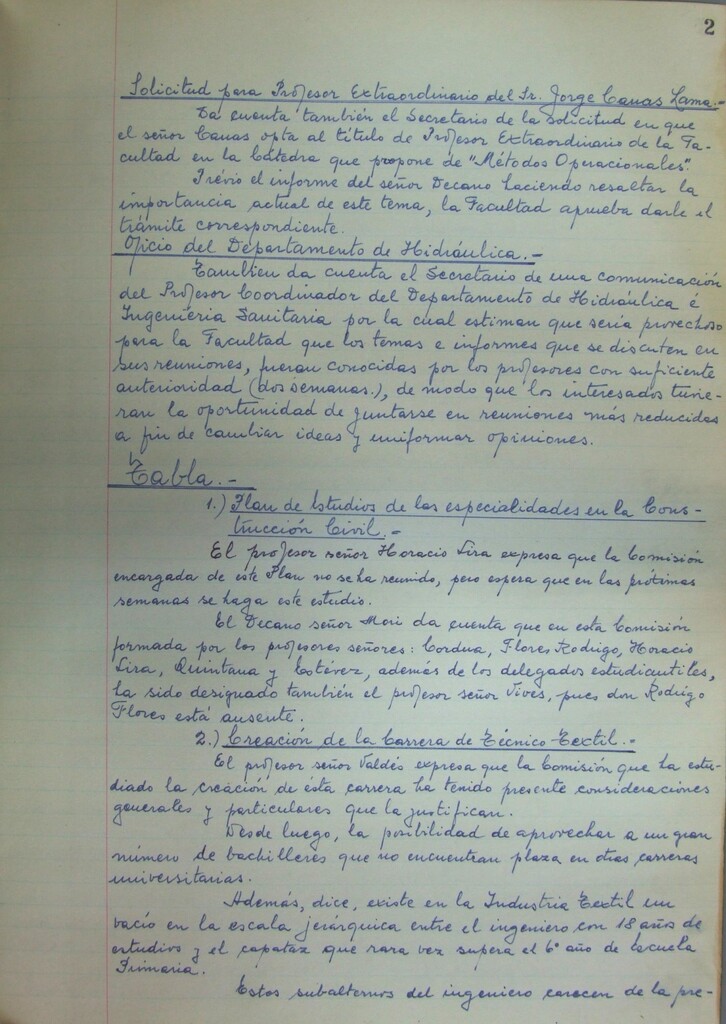 2
Solicitud para Profesor Extraordinario del Sr. Jorge Cauas Lama.-
Da cuenta también el Secretario de la solicitud en que
el señor Cauas opta al título de Profesor Extraordinario de la Fa-
cultad en la Cátedra que propone de "Métodos Operacionales".
Previo el informe del señor Decano haciendo resaltar la
importancia actual de este tema, la Facultad aprueba darle el
trámite correspondiente.
Oficio del Departamento de Hidráulica.-
También da cuenta el Secretario de una comunicación
del Profesor Coordinador del Departamento de Hidráulica é
Ingeniería Sanitaria por la cual estiman que sería provechoso
para la Facultad que los temas e informes que se discuten en
sus reuniones, fueran conocidas por los profesores con suficiente
anterioridad (dos semanas.), de modo que los interesados tuvie-
ran la oportunidad de juntarse en reuniones más reducidas
a fin de cambiar ideas y uniformar opiniones.
Tabla.-
1.) Plan de Estudios de las especialidades en la Cons-
trucción Civil.-
El profesor señor Horacio Lira expresa que la Comisión
encargada de este Plan no se ha reunido, pero espera que en las próximas
semanas se haga este estudio.
El Decano señor Mori da cuenta que en esta Comisión
formada por los profesores señores: Cordua, Flores Rodrigo, Horacio
Lira, Quintana y Estévez, además de los delegados estudiantiles,
ha sido designado también el profesor señor Vives, pues don Rodrigo
Flores está ausente.
2.) Creación de la Carrera de Técnico Textil.-
El profesor señor Valdés expresa que la Comisión que ha estu-
diado la creación de ésta carrera ha tenido presente consideraciones
generales y particulares que la justifican.
Desde luego, la posibilidad de aprovechar a un gran
número de bachilleres que no encuentran plaza en otras carreras
universitarias.
Además, dice, existe en la Industria Textil un
vacío en la escala jerárquica entre el ingeniero con 18 años de
estudios y el capataz que rara vez supera el 6° año de Escuela
Primaria.
Estos subalternos del ingeniero carecen de la pre-